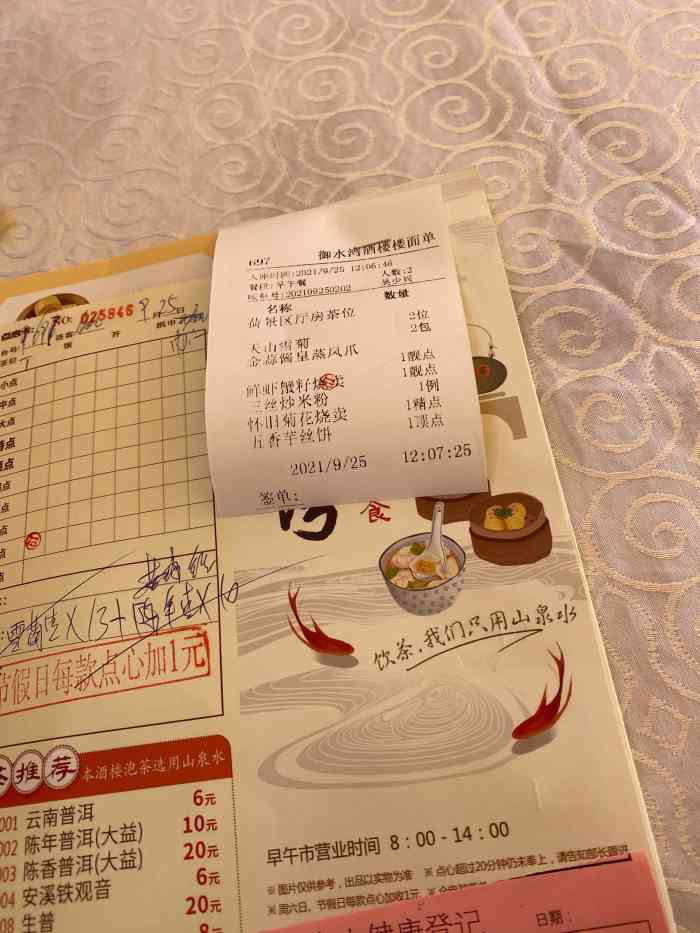 697 御水湾酒楼楼面单
入座时间:2021/9/25 12:06:46
餐段:早午餐 人数:2
账单号:202109250202 吴少凤
名称 数量
荷景区厅房茶位 2位
天山雪菊 2包
金蒜酱皇蒸凤爪 1靓点
鲜虾蟹籽烧卖 1靓点
三丝炒米粉 1例
怀旧菊花烧卖 1精点
五香芋丝饼 1顶点
2021/9/25 12:07:25
签单:
NO: 025846 9月25日
小点
中点
大点
特点
顶点
点
点
点
点
食
节假日每款点心加1元
饮茶,我们只用山泉水
茶推荐 本酒楼泡茶选用山泉水
001 云南普洱 6元
002 陈年普洱(大益) 10元
003 陈香普洱(大益) 20元
004 安溪铁观音 6元
008 生普 20元
8元
早午市营业时间 8:00-14:00
※ 图片仅供参考，出品以实物为准 ※ 点心超过20分钟仍未奉上，请告知部长跟进
※ 周六日、节假日每款点心加收1元
健康登记 日期：